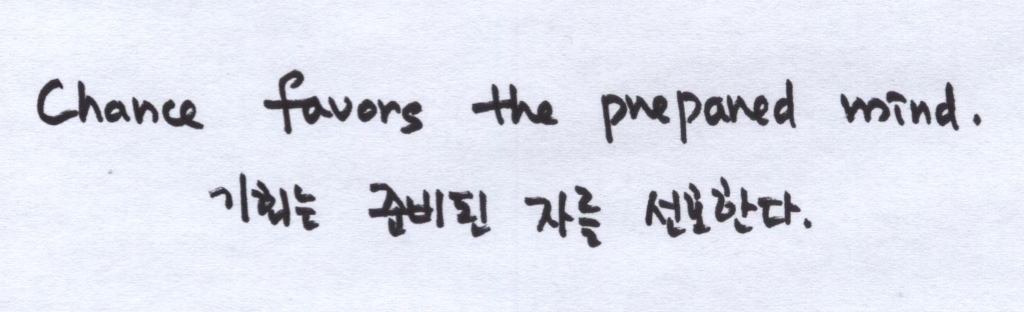 Chance favors the prepared mind.
기회는 준비된 자를 선호한다.